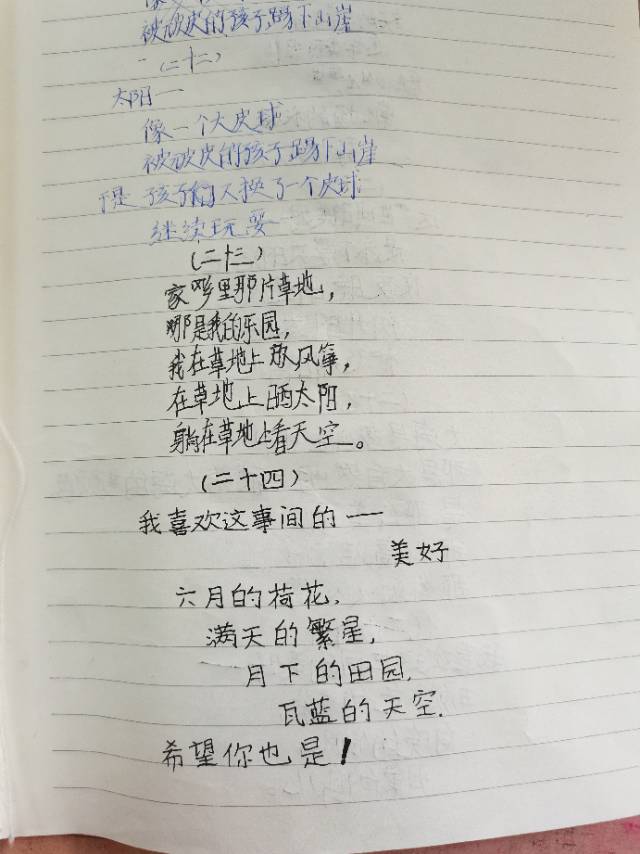 被顽皮的孩子踢下山崖
(二十二)
太阳一
像一个大皮球
被顽皮的孩子踢下山崖
于是 孩子们又换了一个皮球
继续玩耍
(二十三)
家乡里那片草地,
哪是我的乐园,
我在草地上放风筝,
在草地上晒太阳,
躺在草地上看天空。
(二十四)
我喜欢这事间的一一
美好
六月的荷花,
满天的繁星,
月下的田园,
瓦蓝的天空.
希望你也是!